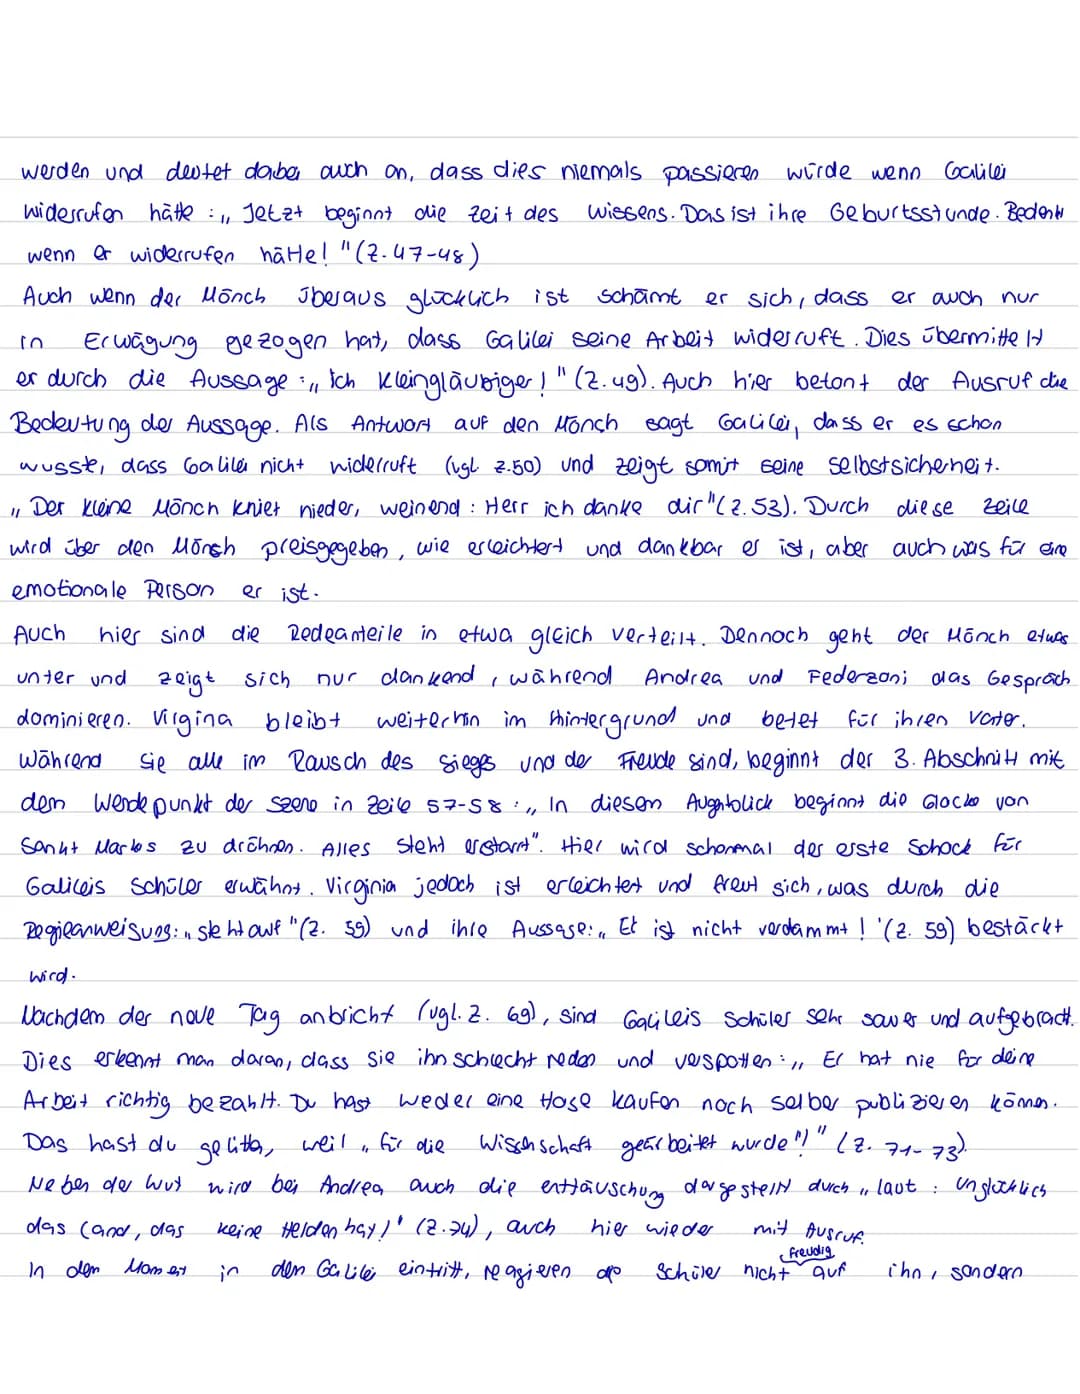 werden und deutet dabei auch an, dass dies niemals passieren würde wenn Galilei
widerrufen hätte : „ Jetzt beginnt die Zeit des Wissens. Das ist ihre Geburtsstunde. Bedenkt
wenn er widerrufen hätte! " (Z. 47-48)
Auch wenn der Mönch überaus glücklich ist schämt er sich, dass er auch nur
in Erwägung gezogen hat, dass Galilei seine Arbeit widerruft. Dies übermittelt
er durch die Aussage : „ Ich Kleingläubiger ! " (Z. 49). Auch hier betont der Ausruf die
Bedeutung der Aussage. Als Antwort auf den Mönch sagt Galilei, dass er es schon
wusste, dass Galilei nicht widerruft (vgl. Z. 50) und zeigt somit seine Selbstsicherheit.
„ Der kleine Mönch kniet nieder, weinend : Herr ich danke dir " (Z. 53). Durch diese Zeile
wird über den Mönch preisgegeben, wie erleichtert und dankbar er ist, aber auch was für eine
emotionale Person er ist.
Auch hier sind die Redeanteile in etwa gleich verteilt. Dennoch geht der Mönch etwas
unter und zeigt sich nur dankend, während Andrea und Federzoni das Gespräch
dominieren. Virgina bleibt weiterhin im Hintergrund und betet für ihren Vater.
Während sie alle im Rausch des Sieges und der Freude sind, beginnt der 3. Abschnitt mit
dem Wendepunkt der Szene in Zeile 57-58 : „ In diesem Augenblick beginnt die Glocke von
Sankt Markus zu dröhnen. Alles steht erstarrt". Hier wird schonmal der erste Schock für
Galileis Schüler erwähnt. Virginia jedoch ist erleichtert und freut sich, was durch die
Regieanweisung: „ steht auf " (Z. 59) und ihre Aussage: „ Er ist nicht verdammt ! " (Z. 59) bestärkt
wird.
Nachdem der neue Tag anbricht (vgl. Z. 69), sind Galileis Schüler sehr sauer und aufgebracht.
Dies erkennt man daran, dass sie ihn schlecht reden und verspotten : „ Er hat nie für deine
Arbeit richtig bezahlt. Du hast weder eine Hose kaufen noch selber publizieren können.
Das hast du gelitten, weil „ für die Wissenschaft gearbeitet wurde "! " (Z. 71-73).
Neben der Wut wird bei Andrea auch die Enttäuschung dargestellt durch „ laut : Unglücklich
das Land, das keine Helden hat ! " (Z. 74), auch hier wieder mit Ausruf.
In dem Moment in dem Galilei eintritt, reagieren die Schüler nicht freudig auf ihn, sondern